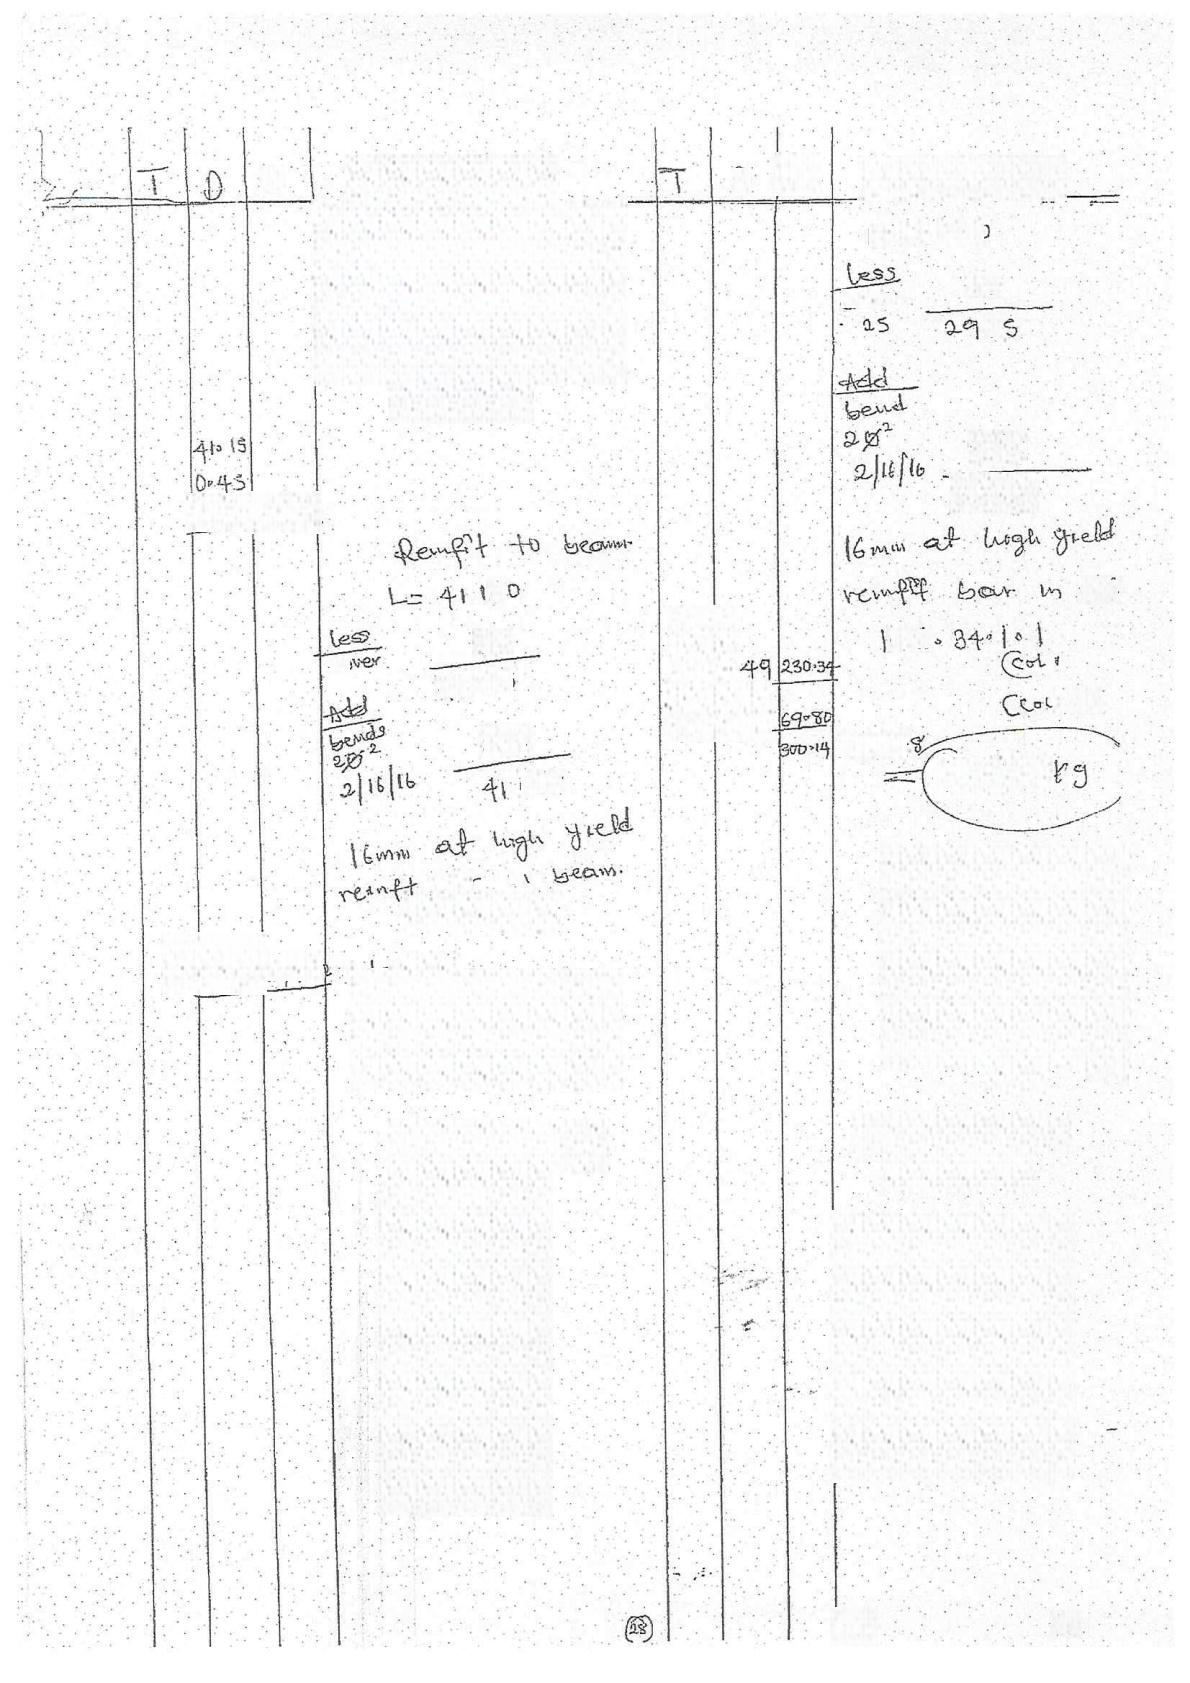 T D
41.15
0.45
Reinft to beam
L= 41 1 0
Less
Add
bends
2ϕ 2
2/16/16
41
16mm at high yield
reinft beam.
T
Less
25 29 5
Add
bend
2ϕ 2
2/16/16
16mm at high yield
reinft bar in
1 .34.1.1
49 230.34
(Col.
69.80
(Col
300.14
kg
28